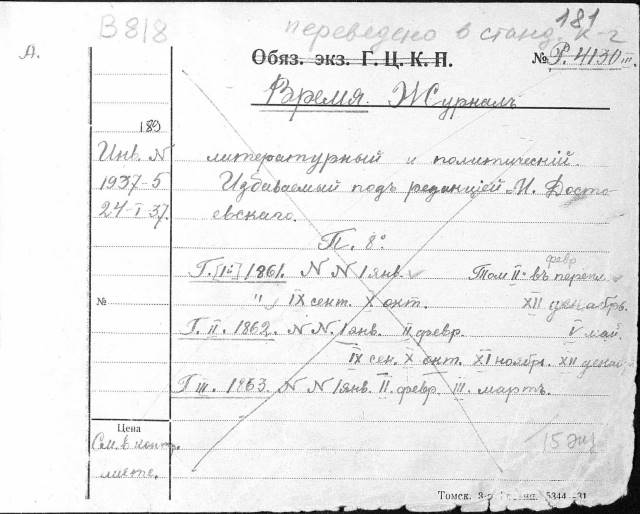 181
В 818 переведено в станд. к-г
А.
Обяз. экз. Г. Ц. К. П. № Р. 4130 III.
Время. Журналъ
189
Инв. N литературный и политическій.
1937-5 Издаваемый подъ редакціей М. Досто-
24-I-37. евскаго.
П. 8°
февр
Г. [I й] 1861. N N 1 янв. Том II й въ перепл.
№ " IX сент. X окт. XII декабрь.
Г. II. 1862. N N. 1 янв. II февр. V май.
IX сен. X окт. XI ноябрь. XII декаб.
Г III. 1863. N N 1 янв. II. февр. III. мартъ.
Цена
См. в конт. 15 экз
листе.
Томск. 5344-31